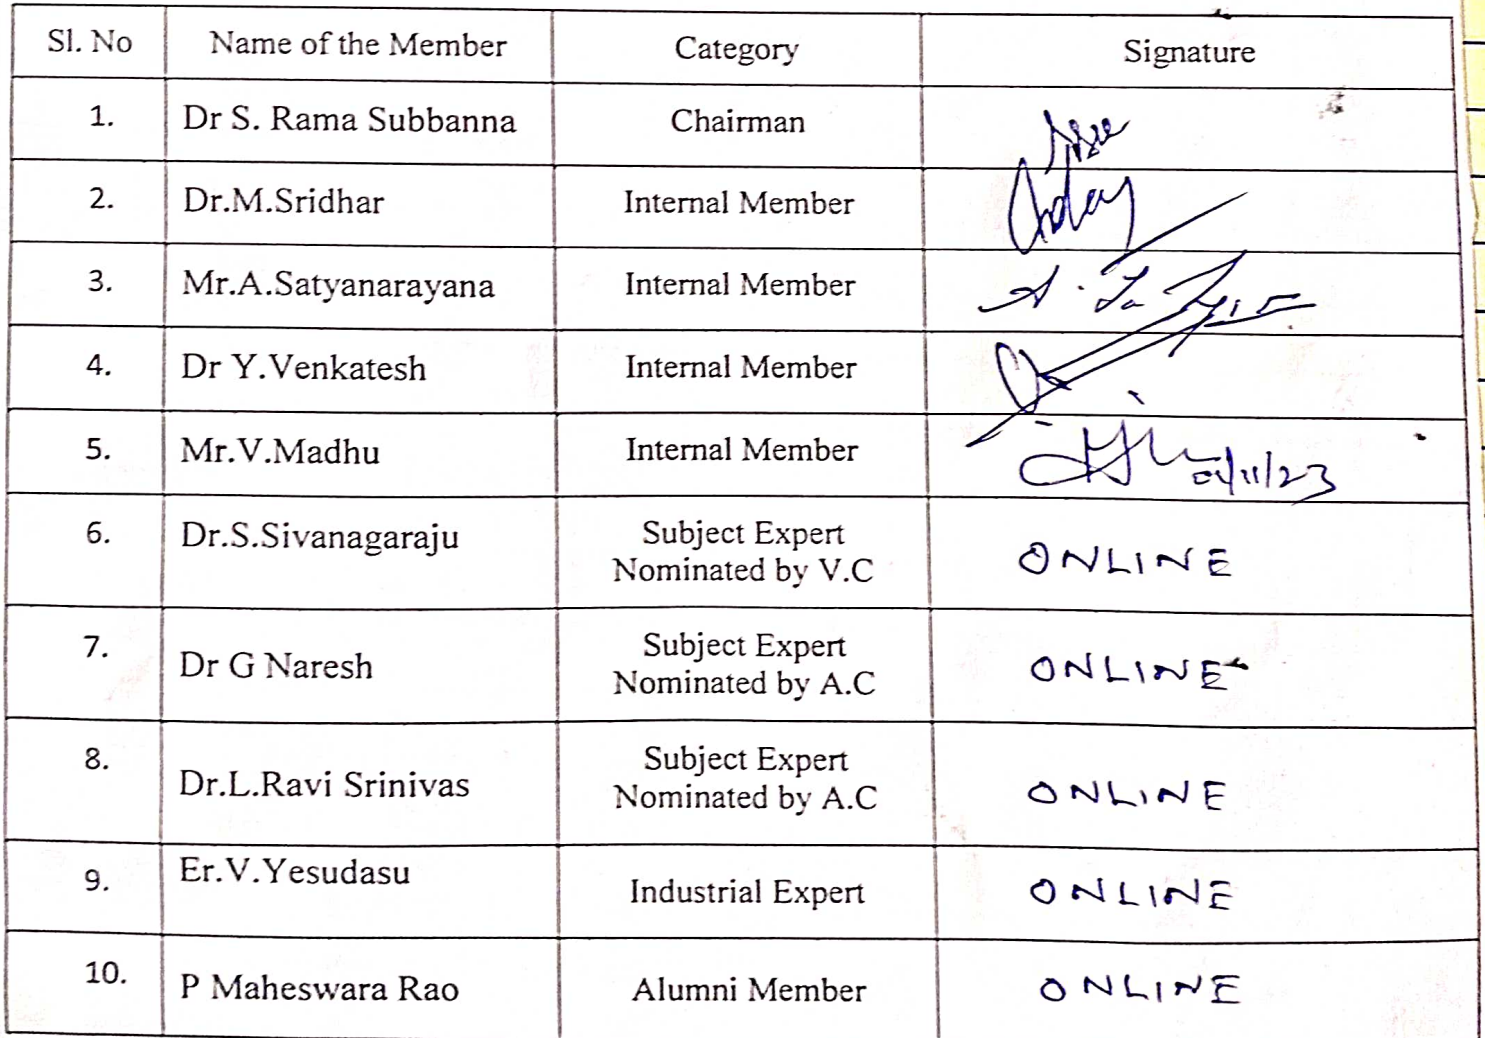 Sl. No Name of the Member Category Signature
1. Dr S. Rama Subbanna Chairman
2. Dr.M.Sridhar Internal Member
3. Mr.A.Satyanarayana Internal Member
4. Dr Y.Venkatesh Internal Member
5. Mr.V.Madhu Internal Member
6. Dr.S.Sivanagaraju Subject Expert
Nominated by V.C ONLINE
7. Dr G Naresh Subject Expert
Nominated by A.C ONLINE
8. Dr.L.Ravi Srinivas Subject Expert
Nominated by A.C ONLINE
9. Er.V.Yesudasu Industrial Expert ONLINE
10. P Maheswara Rao Alumni Member ONLINE